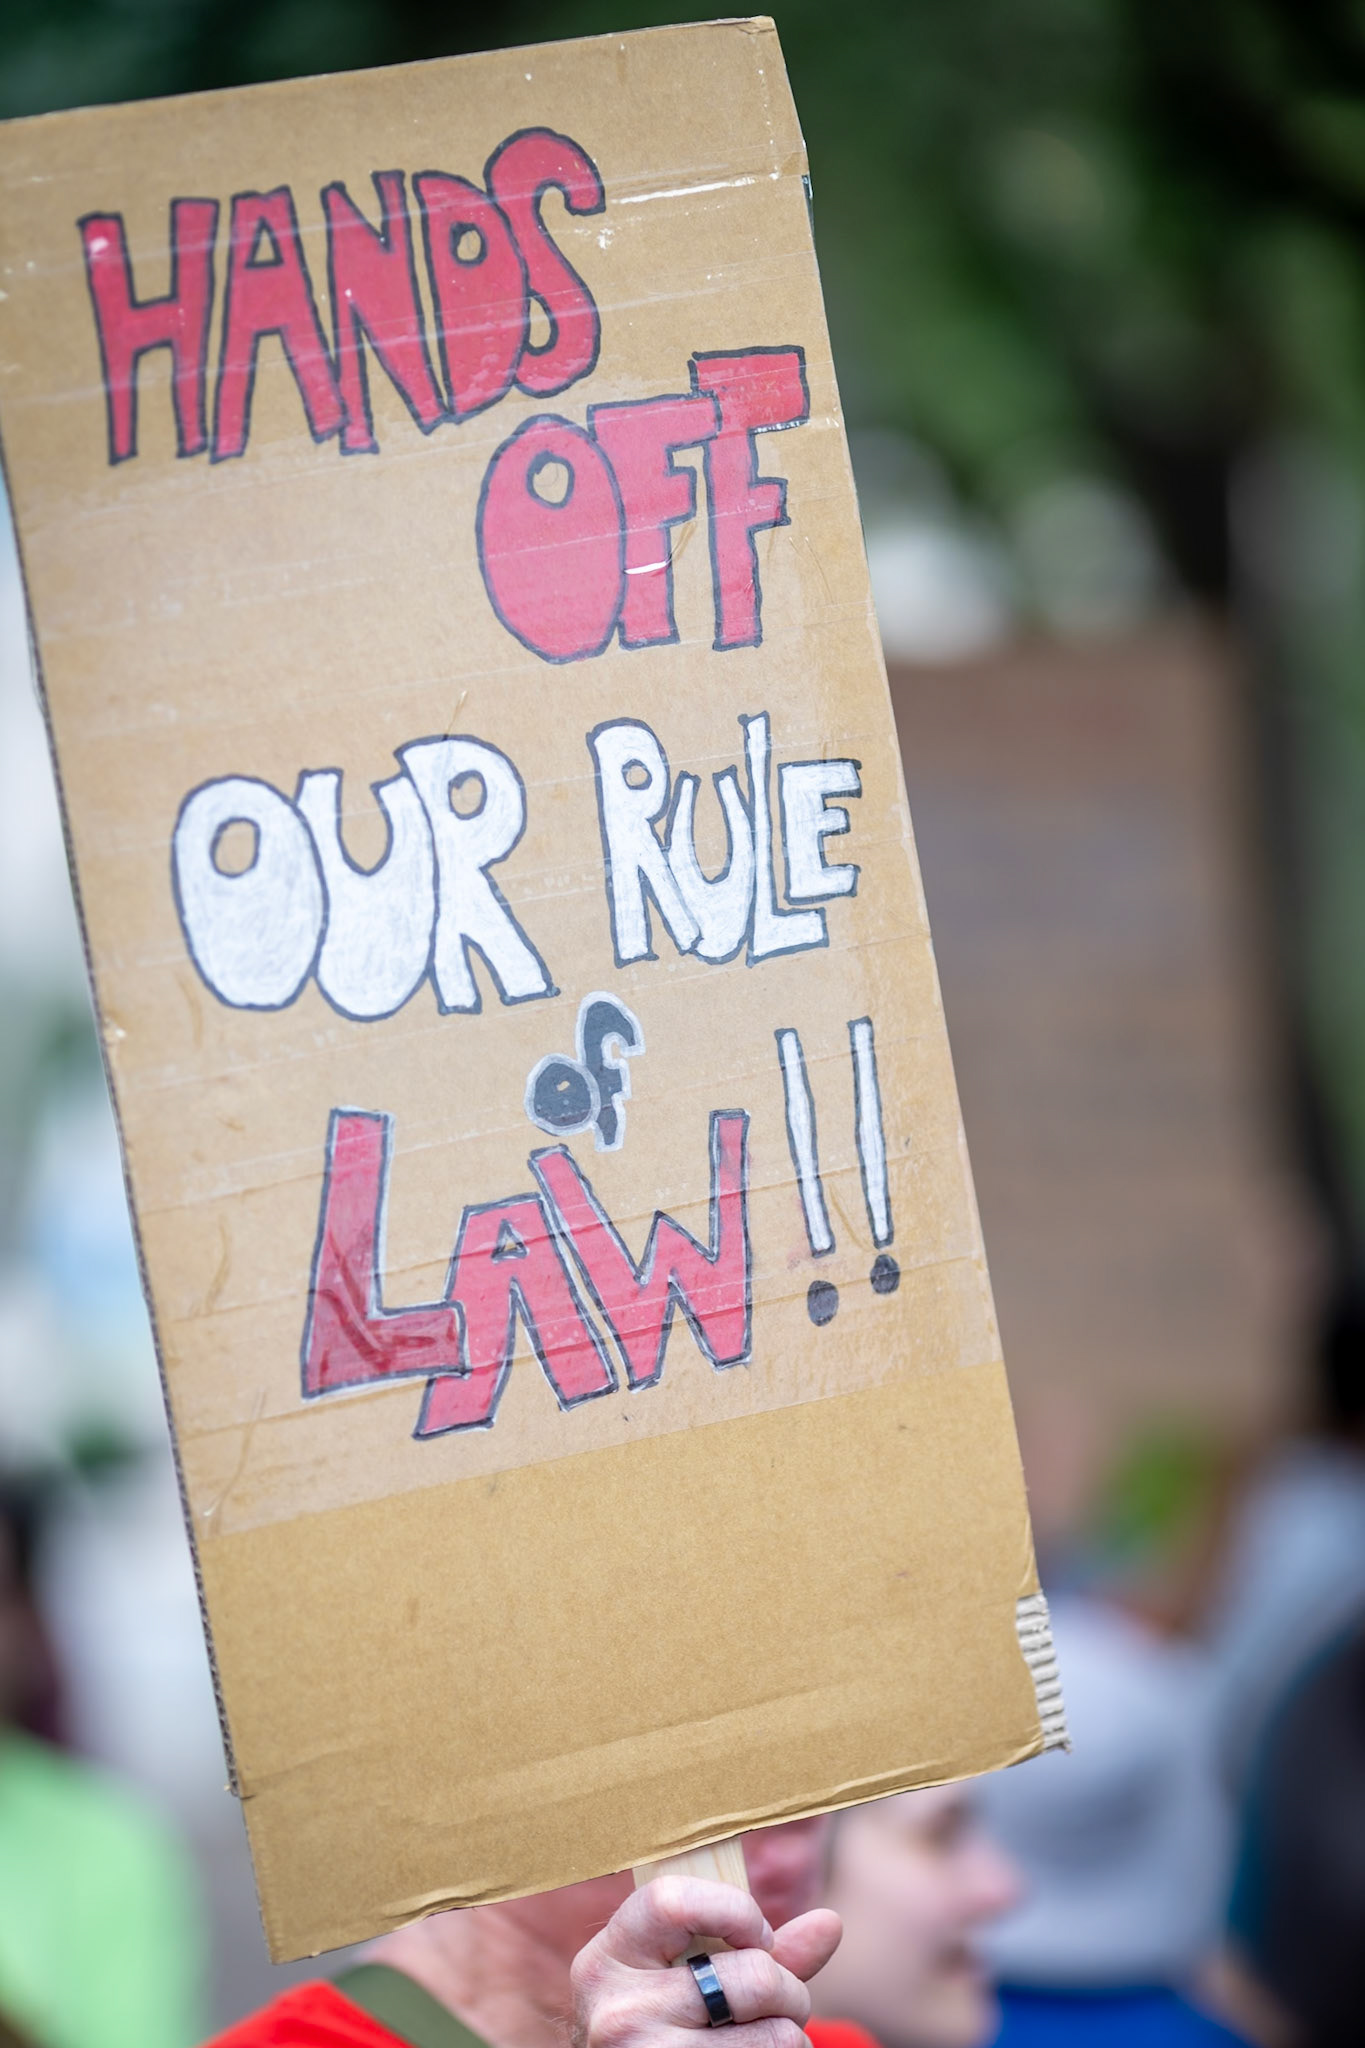 HANDS
OFF
OUR RULE
of
LAW!!